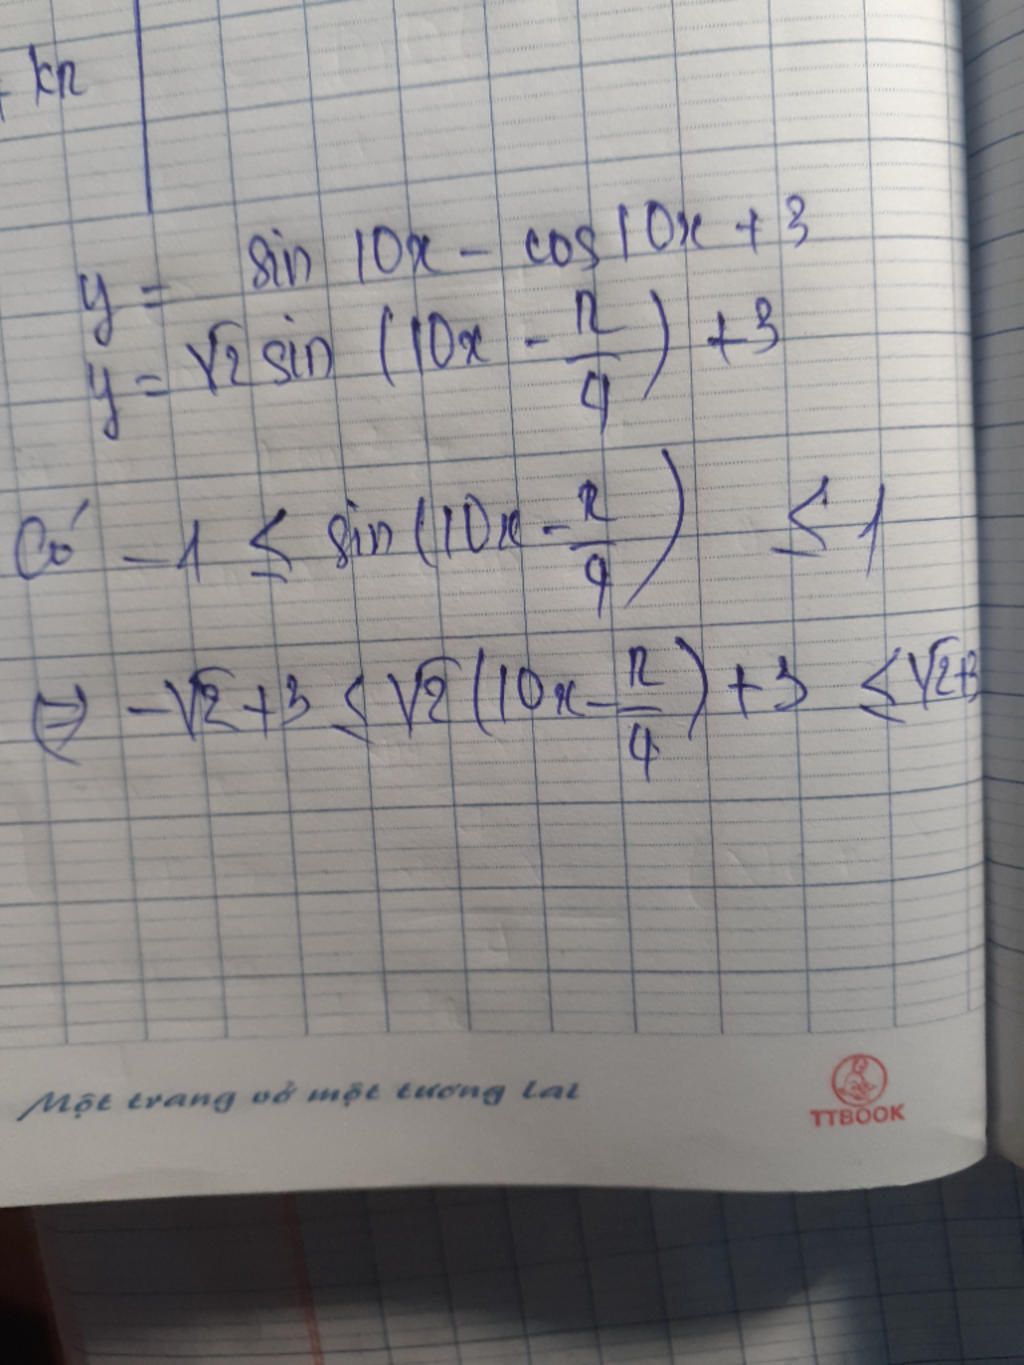 + kπ
y = sin 10x - cos 10x + 3
y = √2 sin (10x - π/4) + 3
Có -1 ≤ sin (10x - π/4) ≤ 1
⇔ -√2 + 3 ≤ √2 (10x - π/4) + 3 ≤ √2 + 3
Một trang vở một tương lai
TTBOOK